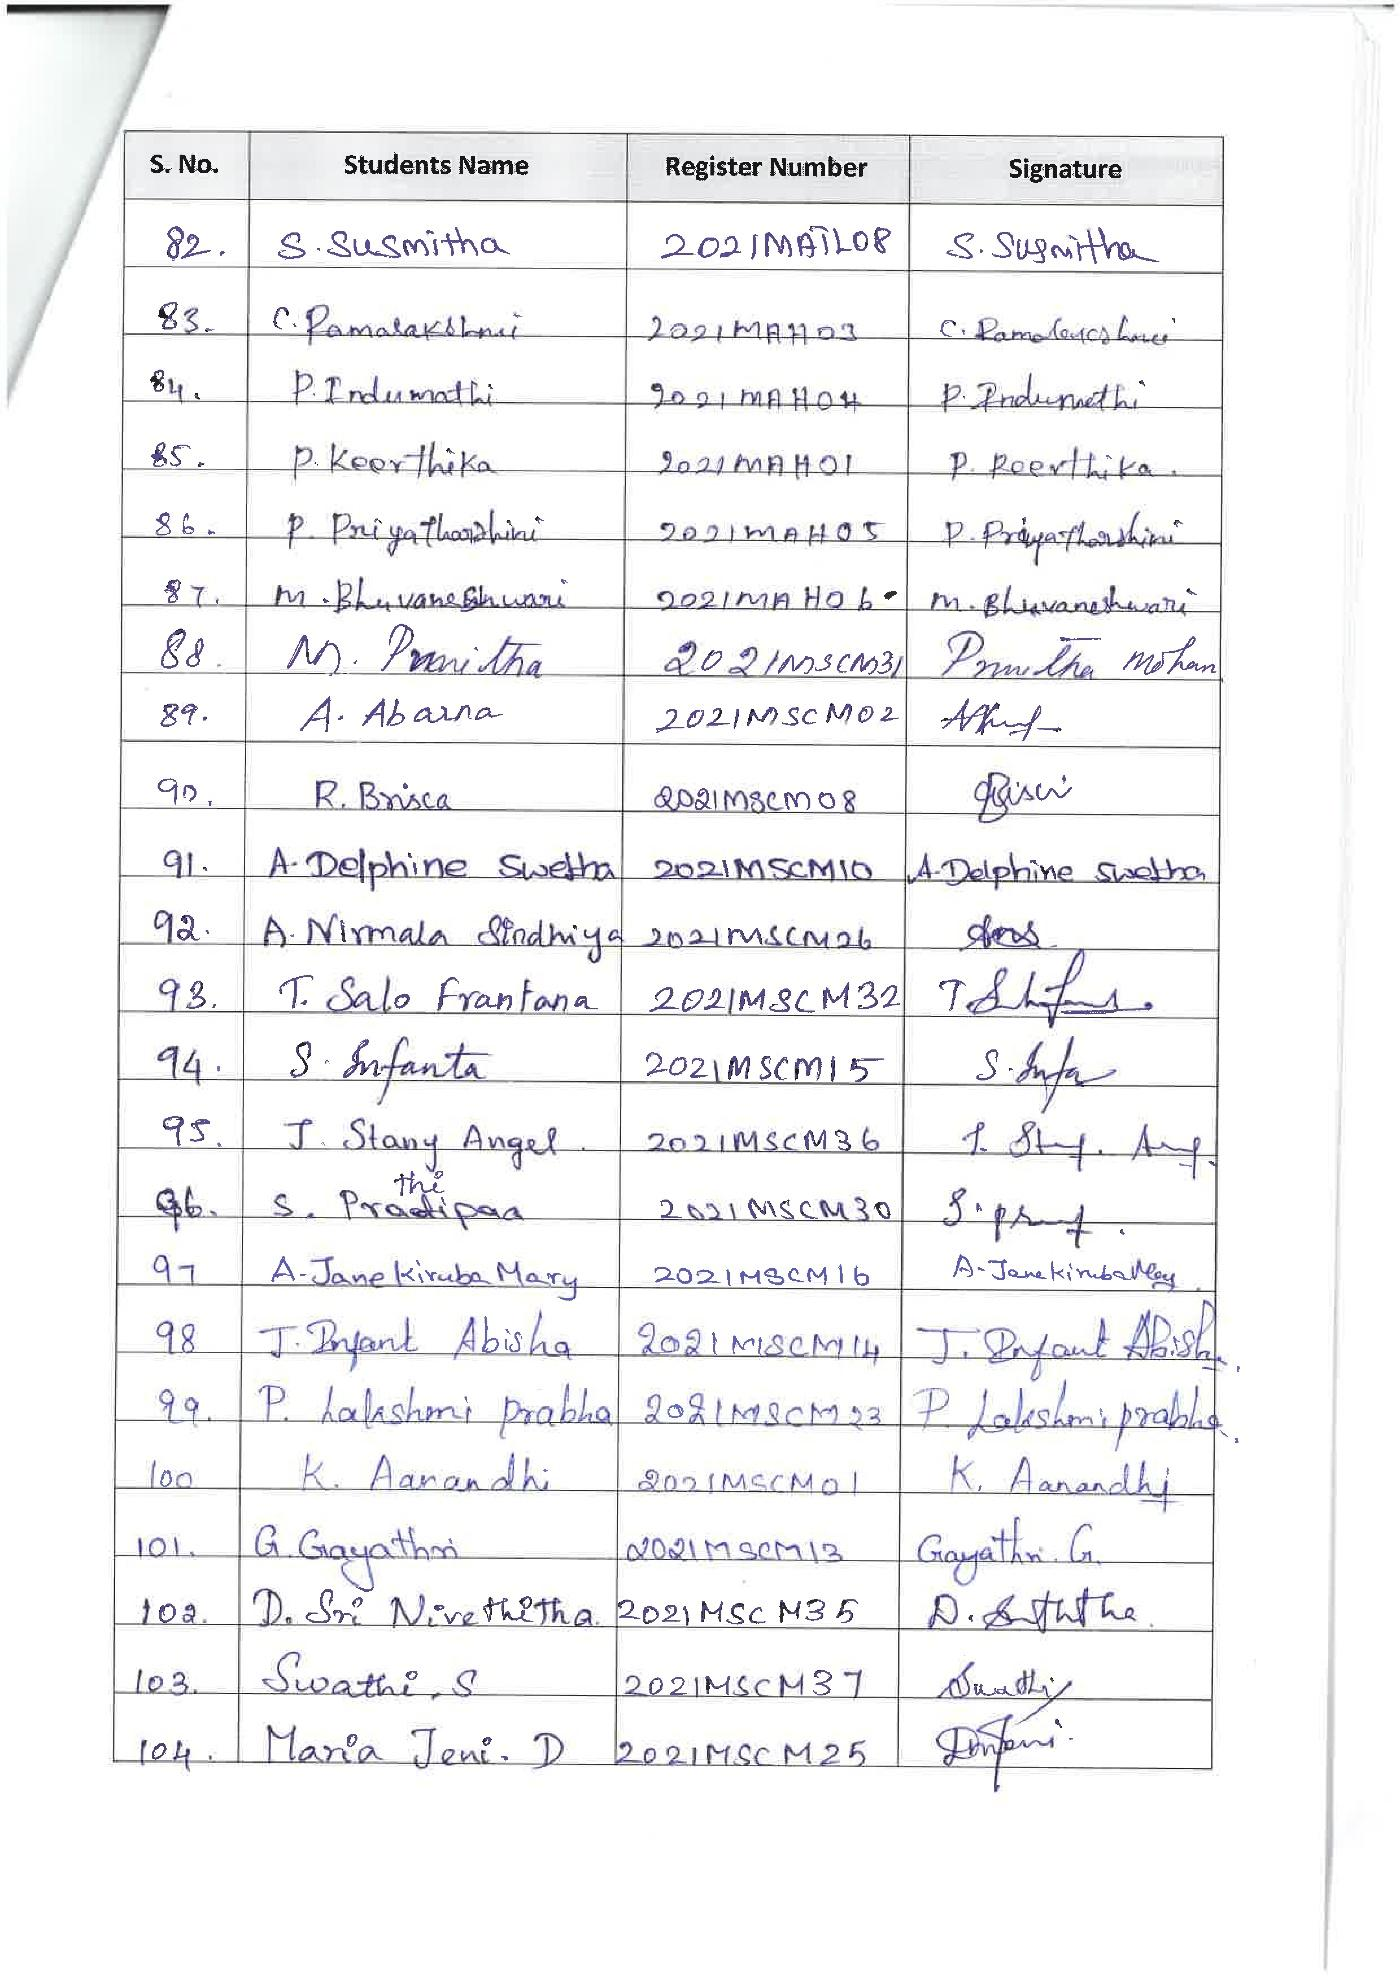 S. No. Students Name Register Number Signature
82. S. Susmitha 2021MATL08 S. Susmitha
83. C. Ramalakshmi 2021MAH03 C. Ramalakshmi
84. P. Indumathi 2021MAH04 P. Indumathi
85. P. Keerthika 2021MAH01 P. Keerthika.
86. P. Priyatharshini 2021MAH05 P. Priyatharshini
87. M. Bhuvaneshwari 2021MAH06 M. Bhuvaneshwari
88. M. Punitha 2021MSCM31 Punitha Mohan
89. A. Abarna 2021MSCM02
90. R. Brisca 2021MSCM08
91. A. Delphine Swetha 2021MSCM10 A. Delphine Swetha
92. A. Nirmala Sindhiya 2021MSCM26
93. T. Salo Frantana 2021MSCM32
94. S. Infanta 2021MSCM15 S. Infa
95. J. Stany Angel. 2021MSCM36
thi
96. S. Pradipaa 2021MSCM30
97 A. Jane Kiruba Mary 2021MSCM16 A. Jane Kiruba Mary
98 J. Infant Abisha 2021MSCM14 J. Infant Abisha.
99. P. Lakshmi prabha 2021MSCM23 P. Lakshmi prabha.
100 K. Aanandhi 2021MSCM01 K. Aanandhi
101. G. Gayathri 2021MSCM13 Gayathri. G.
102. D. Sri Nivethitha. 2021MSCM35
103. Swathi. S 2021MSCM37 Swathi
104. Maria Jeni. D 2021MSCM25